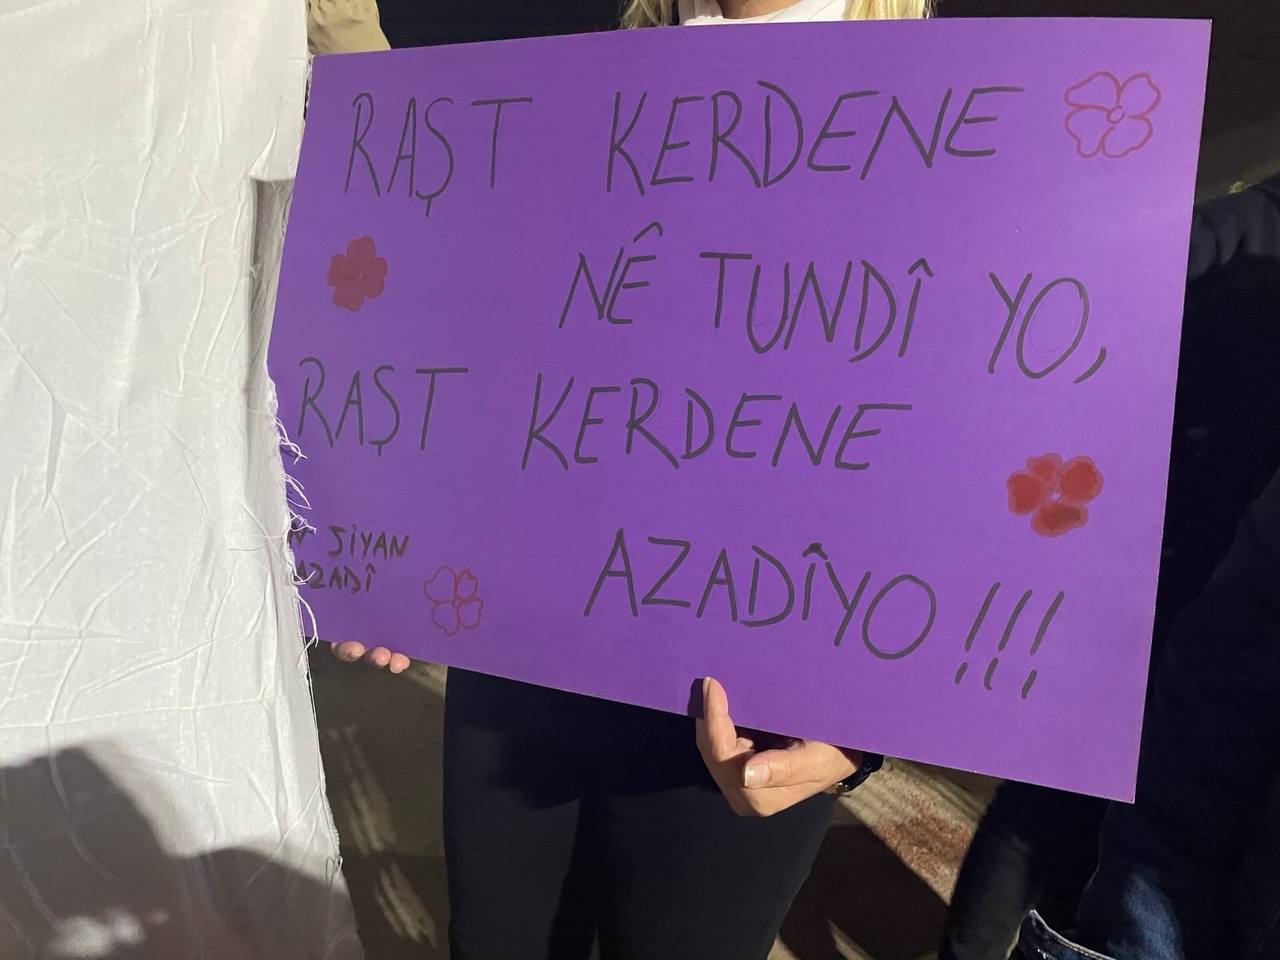 RAŞT KERDENE
NÊ TUNDÎ YO,
RAŞT KERDENE
AZADÎYO!!!
ŞİYAN
AZADÎ